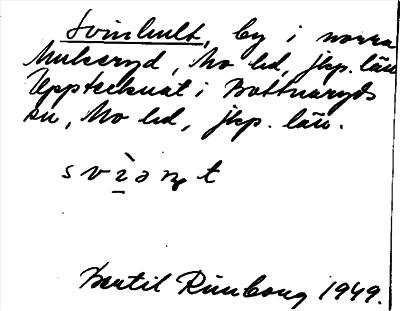 Svinhult, by i norra
Mulseryd, Mo hd, jkp. län
Upptecknat i Bottnaryds
sn, Mo hd, jkp. län.
Bertil 1949.